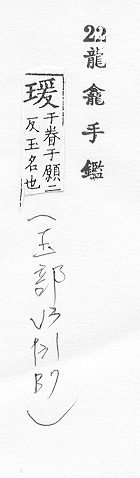 22龍龕手鑑
瑗于眷于願二
反玉名也
(玉部